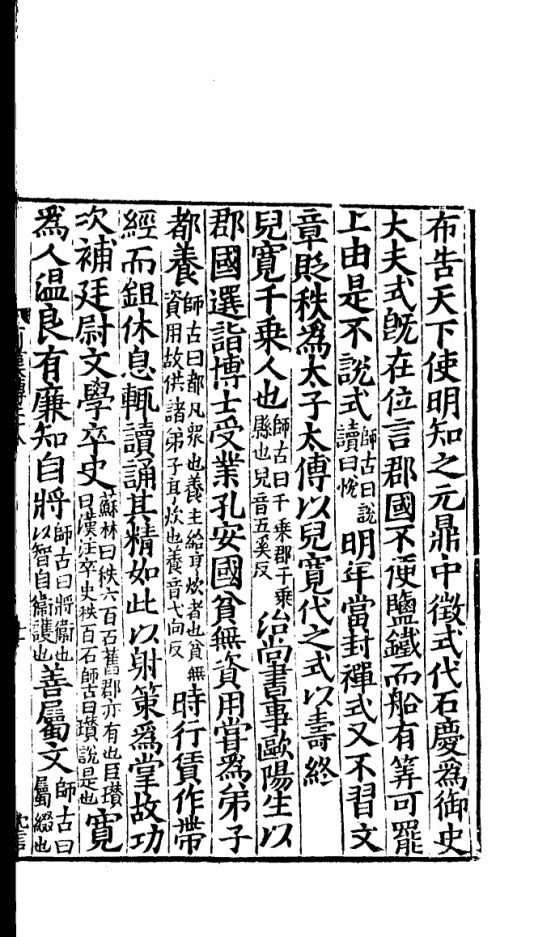 布告天下使明知之元鼎中徵式代石慶為御史
大夫式既在位言郡國不便鹽鐵而船有筭可罷
上由是不說式師古曰說讀曰悅明年當封禪式又不習文
章貶秩為太子太傅以兒寬代之式以壽終
兒寬千乘人也師古曰千乘郡千乘縣也兒音五奚反治尚書事歐陽生以
郡國選詣博士受業孔安國貧無資用嘗為弟子
都養師古曰都凡衆也養主給亨炊者也貧無資用故供諸弟子耳炊也養音弋向反時行賃作帶
經而鉏休息輒讀誦其精如此以射策為掌故功
次補廷尉文學卒史蘇林曰秩六百石舊郡亦有也臣瓚曰漢注卒史秩百石師古曰瓚說是也寬
為人溫良有廉知自將師古曰將衞也以智自衞護也善屬文師古曰屬綴也